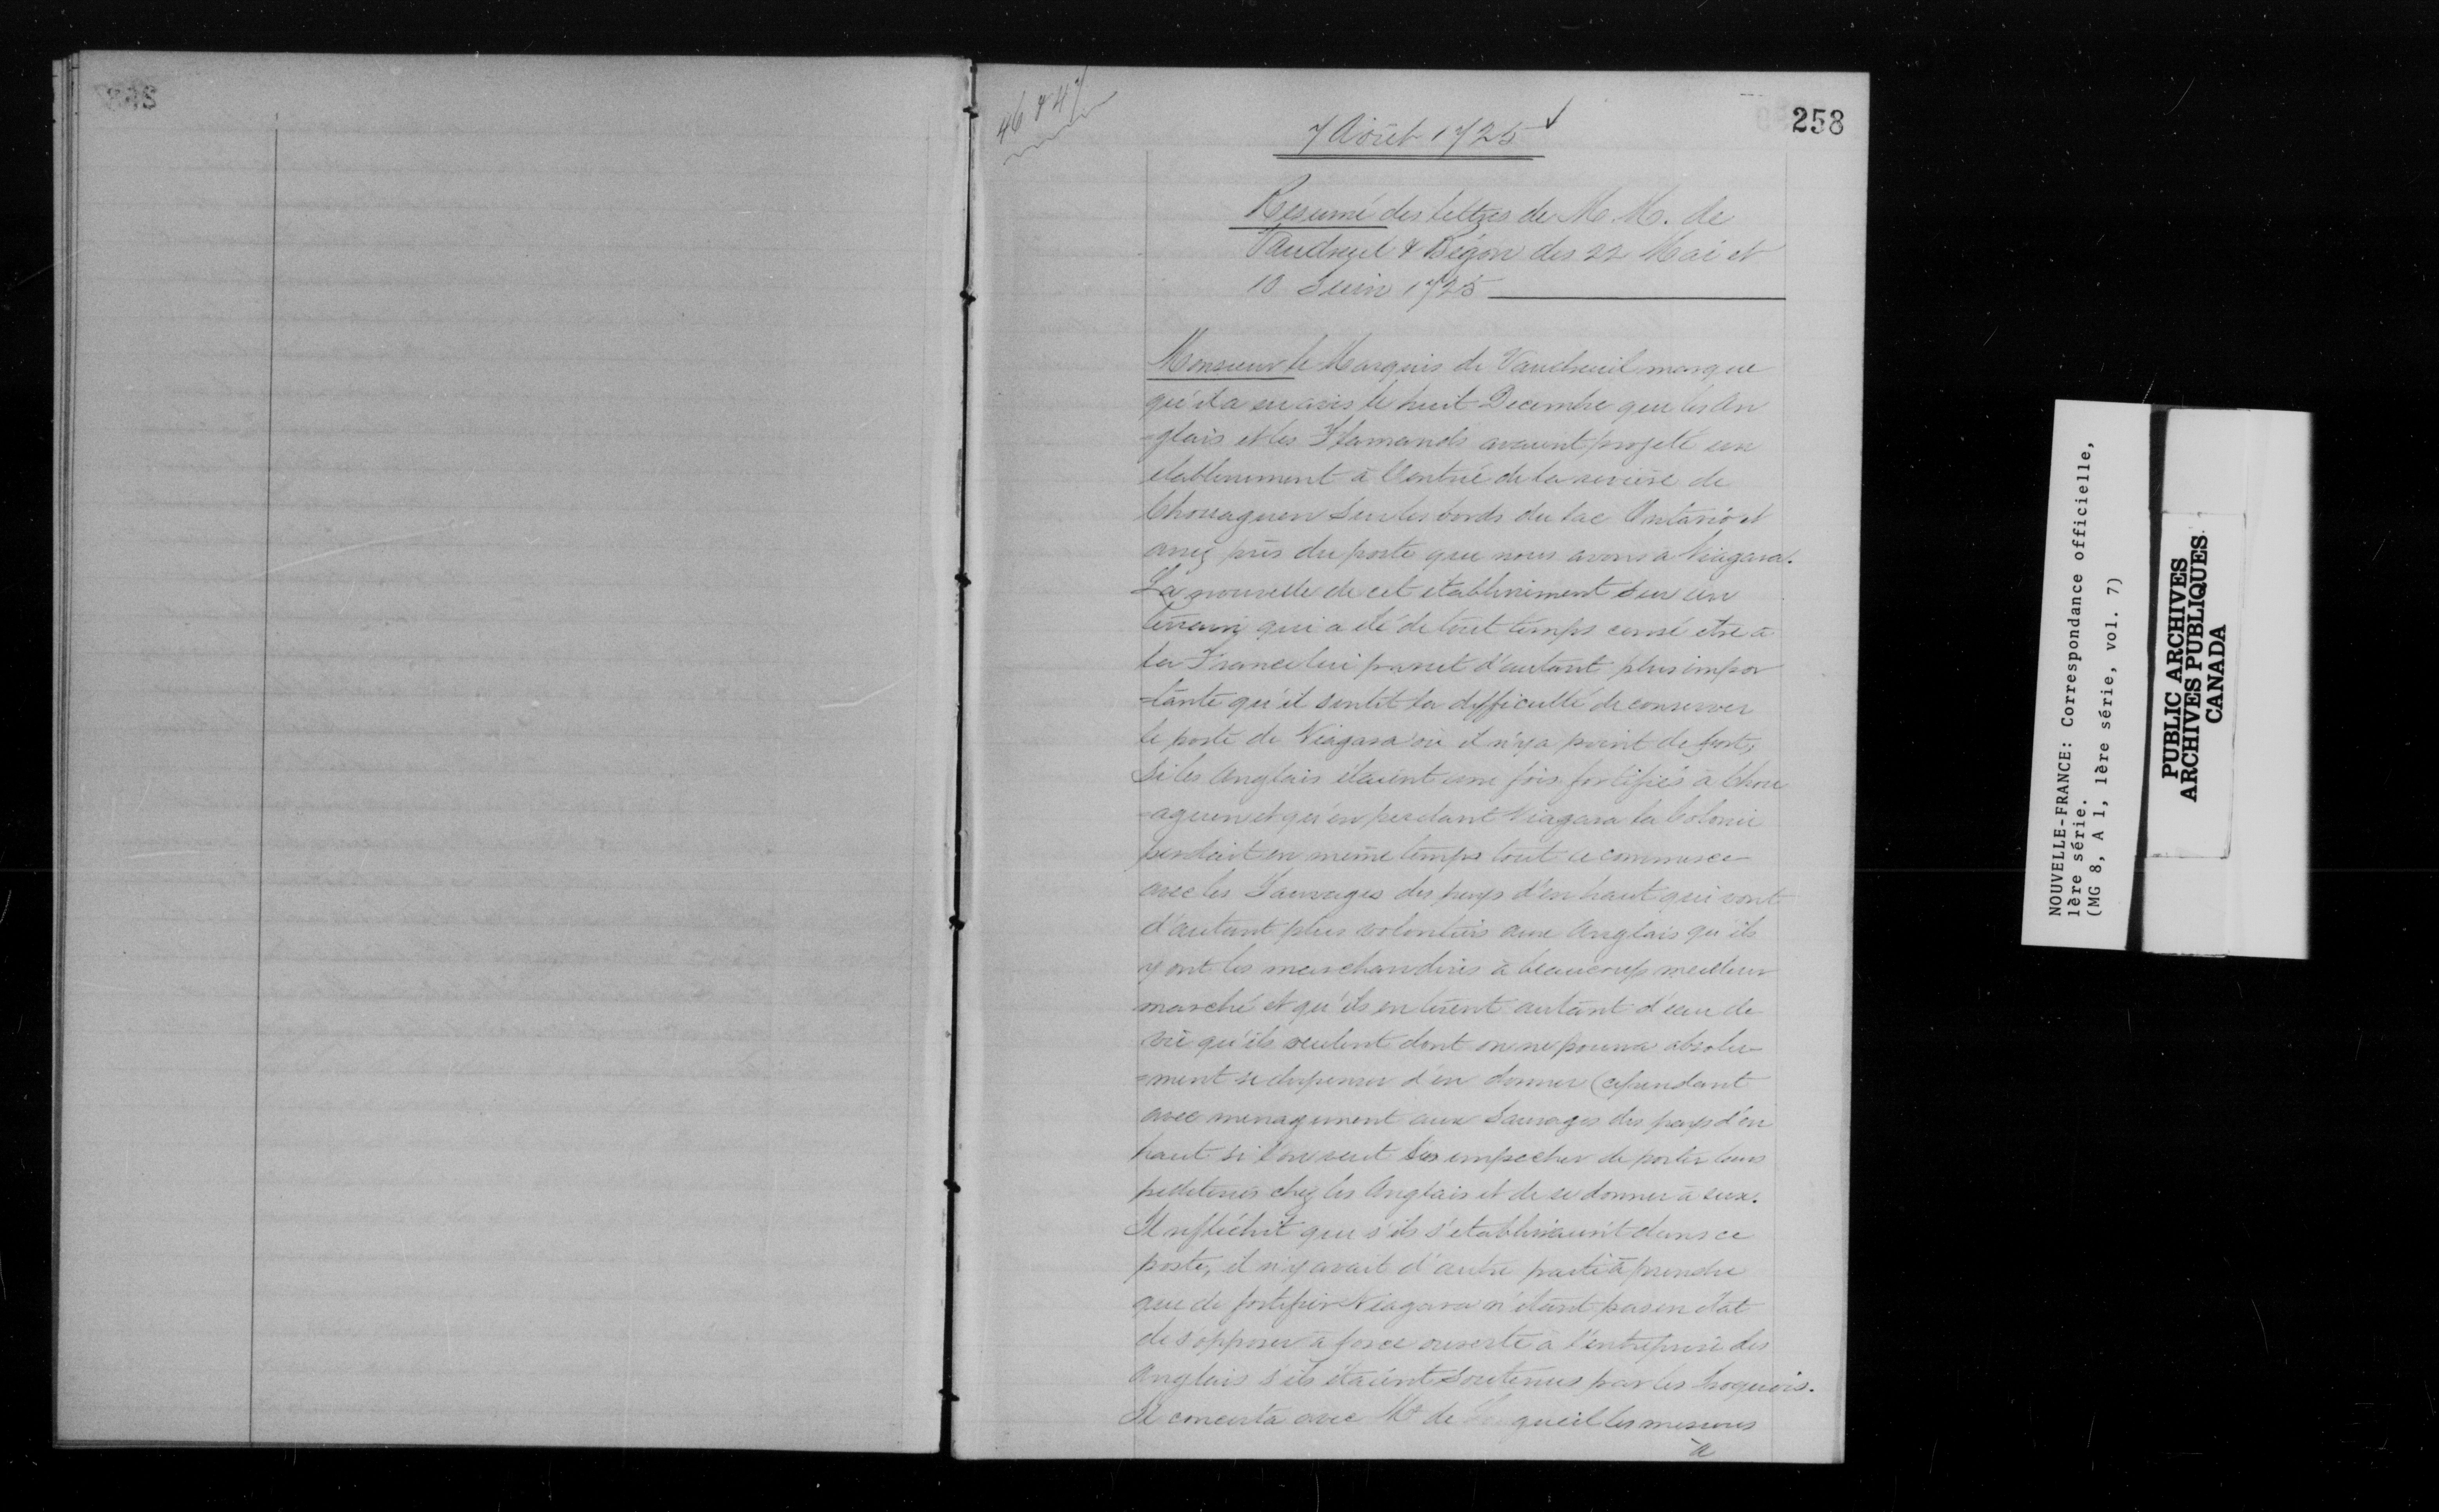 46 & 47
258
7 Août 1725
Resumé des lettres de M. M. de
Vaudreuil & Bégon des 22 Mai et
10 Juin 1725
Monsieur le Marquis de Vaudreuil marque
qu'il a eu avis le huit Decembre que les An
-glais et les Flamands avaient projetté un
etablissement à l'entrée de la rivière de
Chouaguen sur les bords du lac Ontario et
assez près du poste que nous avons à Niagara.
La nouvelle de cet etablissement sur un
terrain qui a été de tout temps censé etre à
la France lui parut d'autant plus impor
-tante qu'il sentit la difficulté de conserver
le poste de Niagara où il n'y a point de fort,
Si les Anglais étaient une fois fortifiés à Choue
-aguen et qu'en perdant Niagara la Colonie
perdait en même temps tout le commerce
avec les Sauvages des pays d'en haut qui vont
d'autant plus volontiers aux Anglais qu'ils
y ont les marchandises à beaucoup meilleur
marché et qu'ils en tirent autant d'eau de
vie qu'ils veulent dont on ne pourra absolu
-ment se dispenser d'en donner (cependant
avec menagement aux Sauvages des pays d'en
haut si l'on veut les empecher de porter leurs
pelleteries chez les Anglais et de se donner à eux.
Il refléchit que s'ils s'etablissaient dans ce
poste, il n'y avait d'autre parti à prendre
que de fortifier Niagara n'étant pas en état
de s'opposer à force ouverte à l'entreprise des
Anglais s'ils étaient soutenus par les Iroquois.
Il concerta avec Mr de gueil les mesures
à
NOUVELLE-FRANCE: Correspondance officielle,
1ère série.
(MG 8, A 1, 1ère série, vol. 7)
PUBLIC ARCHIVES
ARCHIVES PUBLIQUES
CANADA